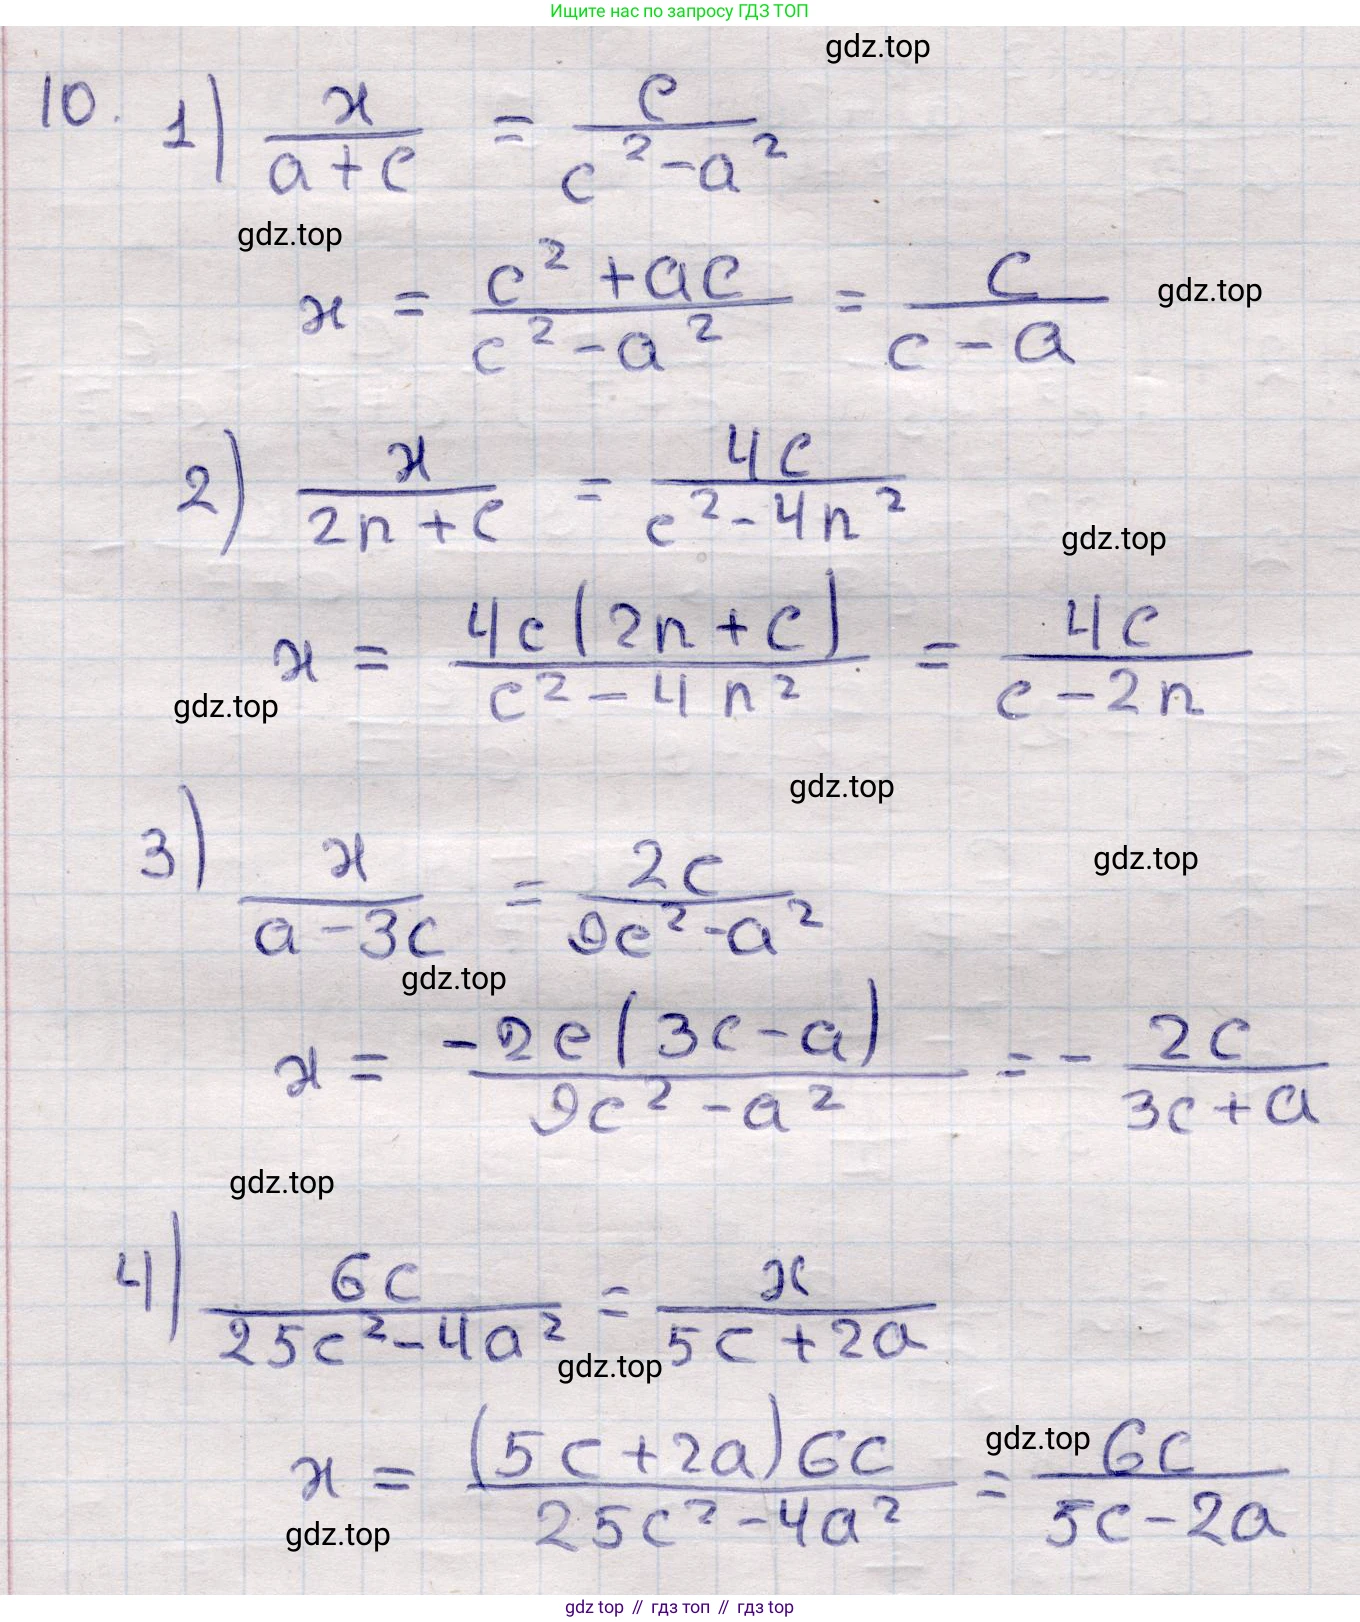 Ищите нас по запросу ГДЗ ТОП
gdz.top
10. 1) x/(a+c) = c/(c²-a²)
gdz.top
x = (c²+ac)/(c²-a²) = c/(c-a)
gdz.top
2) x/(2n+c) = 4c/(c²-4n²)
gdz.top
x = 4c(2n+c)/(c²-4n²) = 4c/(c-2n)
gdz.top
gdz.top
3) x/(a-3c) = 2c/(9c²-a²)
gdz.top
gdz.top
x = -2c(3c-a)/(9c²-a²) = - 2c/(3c+a)
gdz.top
4) 6c/(25c²-4a²) = x/(5c+2a)
gdz.top
x = (5c+2a)6c/(25c²-4a²) = 6c/(5c-2a)
gdz.top
gdz.top
gdz top // гдз топ // gdz top